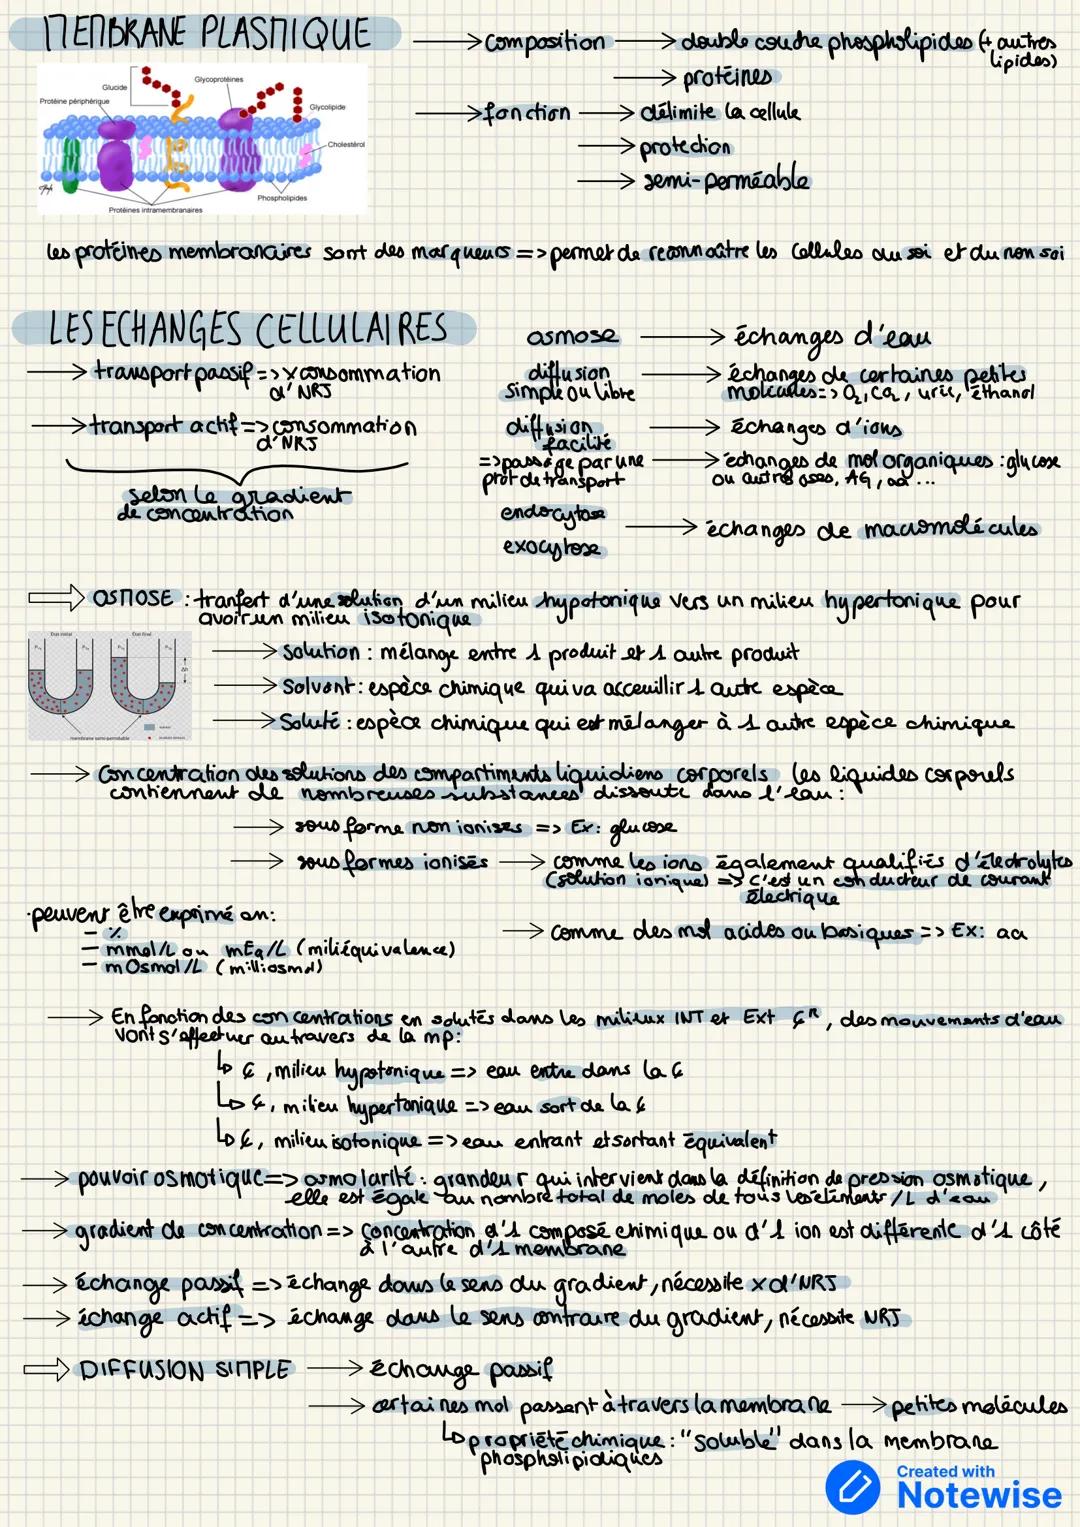 MEMBRANE PLASMIQUE
→ composition → double couche phospholipides (+ autres lipides)
→ protéines
→ fonction → délimite la cellule
→ protection
→ semi-perméable
Glucide
Glycoprotéines
Protéine périphérique
Glycolipide
Cholestérol
Phospholipides
Protéines intramembranaires
les protéines membranaires sont des marqueurs => permet de reconnaître les cellules du soi et du non soi
LES ECHANGES CELLULAIRES
→ transport passif => x consommation
d'NRJ
→ transport actif => consommation
d'NRJ
selon le gradient
de concentration
osmose → échanges d'eau
diffusion
simple ou libre → échanges de certaines petites
molécules => O2, CO2, urée, éthanol
diffusion
facilité → échanges d'ions
=> passage par une
prot de transport → échanges de mol organiques : glucose
ou autres oses, AG, aa ...
endocytose
exocytose → échanges de macromolécules
⇒ OSMOSE : tranfert d'une solution d'un milieu hypotonique vers un milieu hypertonique pour
avoir un milieu isotonique
État initial
État final
membrane semi-perméable
→ Solution : mélange entre 1 produit et 1 autre produit
→ Solvant : espèce chimique qui va acceuillir 1 autre espèce
→ Soluté : espèce chimique qui est mélanger à 1 autre espèce chimique
→ Concentration des solutions des compartiments liquidiens corporels les liquides corporels
contiennent de nombreuses substances dissoute dans l'eau :
→ sous forme non ionisés => Ex: glucose
→ sous formes ionisés → comme les ions également qualifiés d'électrolytes
(solution ionique) => c'est un conducteur de courant
électrique
→ comme des mol acides ou basiques => Ex: aa
·peuvent être exprimé en:
- %
- mmol/L ou mEq/L (miliéquivalence)
- mOsmol/L (milliosmol)
→ En fonction des concentrations en solutés dans les milieux INT et EXT ¢R, des mouvements d'eau
vont s'effectuer au travers de la mp:
↳ ¢, milieu hypotonique => eau entre dans la ¢
↳ ¢, milieu hypertonique => eau sort de la ¢
↳ ¢, milieu isotonique => eau entrant et sortant équivalent
→ pouvoir osmotique => osmolarité : grandeur qui intervient dans la définition de pression osmotique,
elle est égale au nombre total de moles de tous les éléments / L d'eau
→ gradient de concentration => concentration d'1 composé chimique ou d'1 ion est différente d'1 côté
à l'autre d'1 membrane
→ échange passif => échange dans le sens du gradient, nécessite x d'NRJ
→ échange actif => échange dans le sens contraire du gradient, nécessite NRJ
⇒ DIFFUSION SIMPLE → échange passif
→ certaines mol passent à travers la membrane → petites molécules
↳ propriété chimique : "soluble" dans la membrane
phospholipidiques
Created with
Notewise